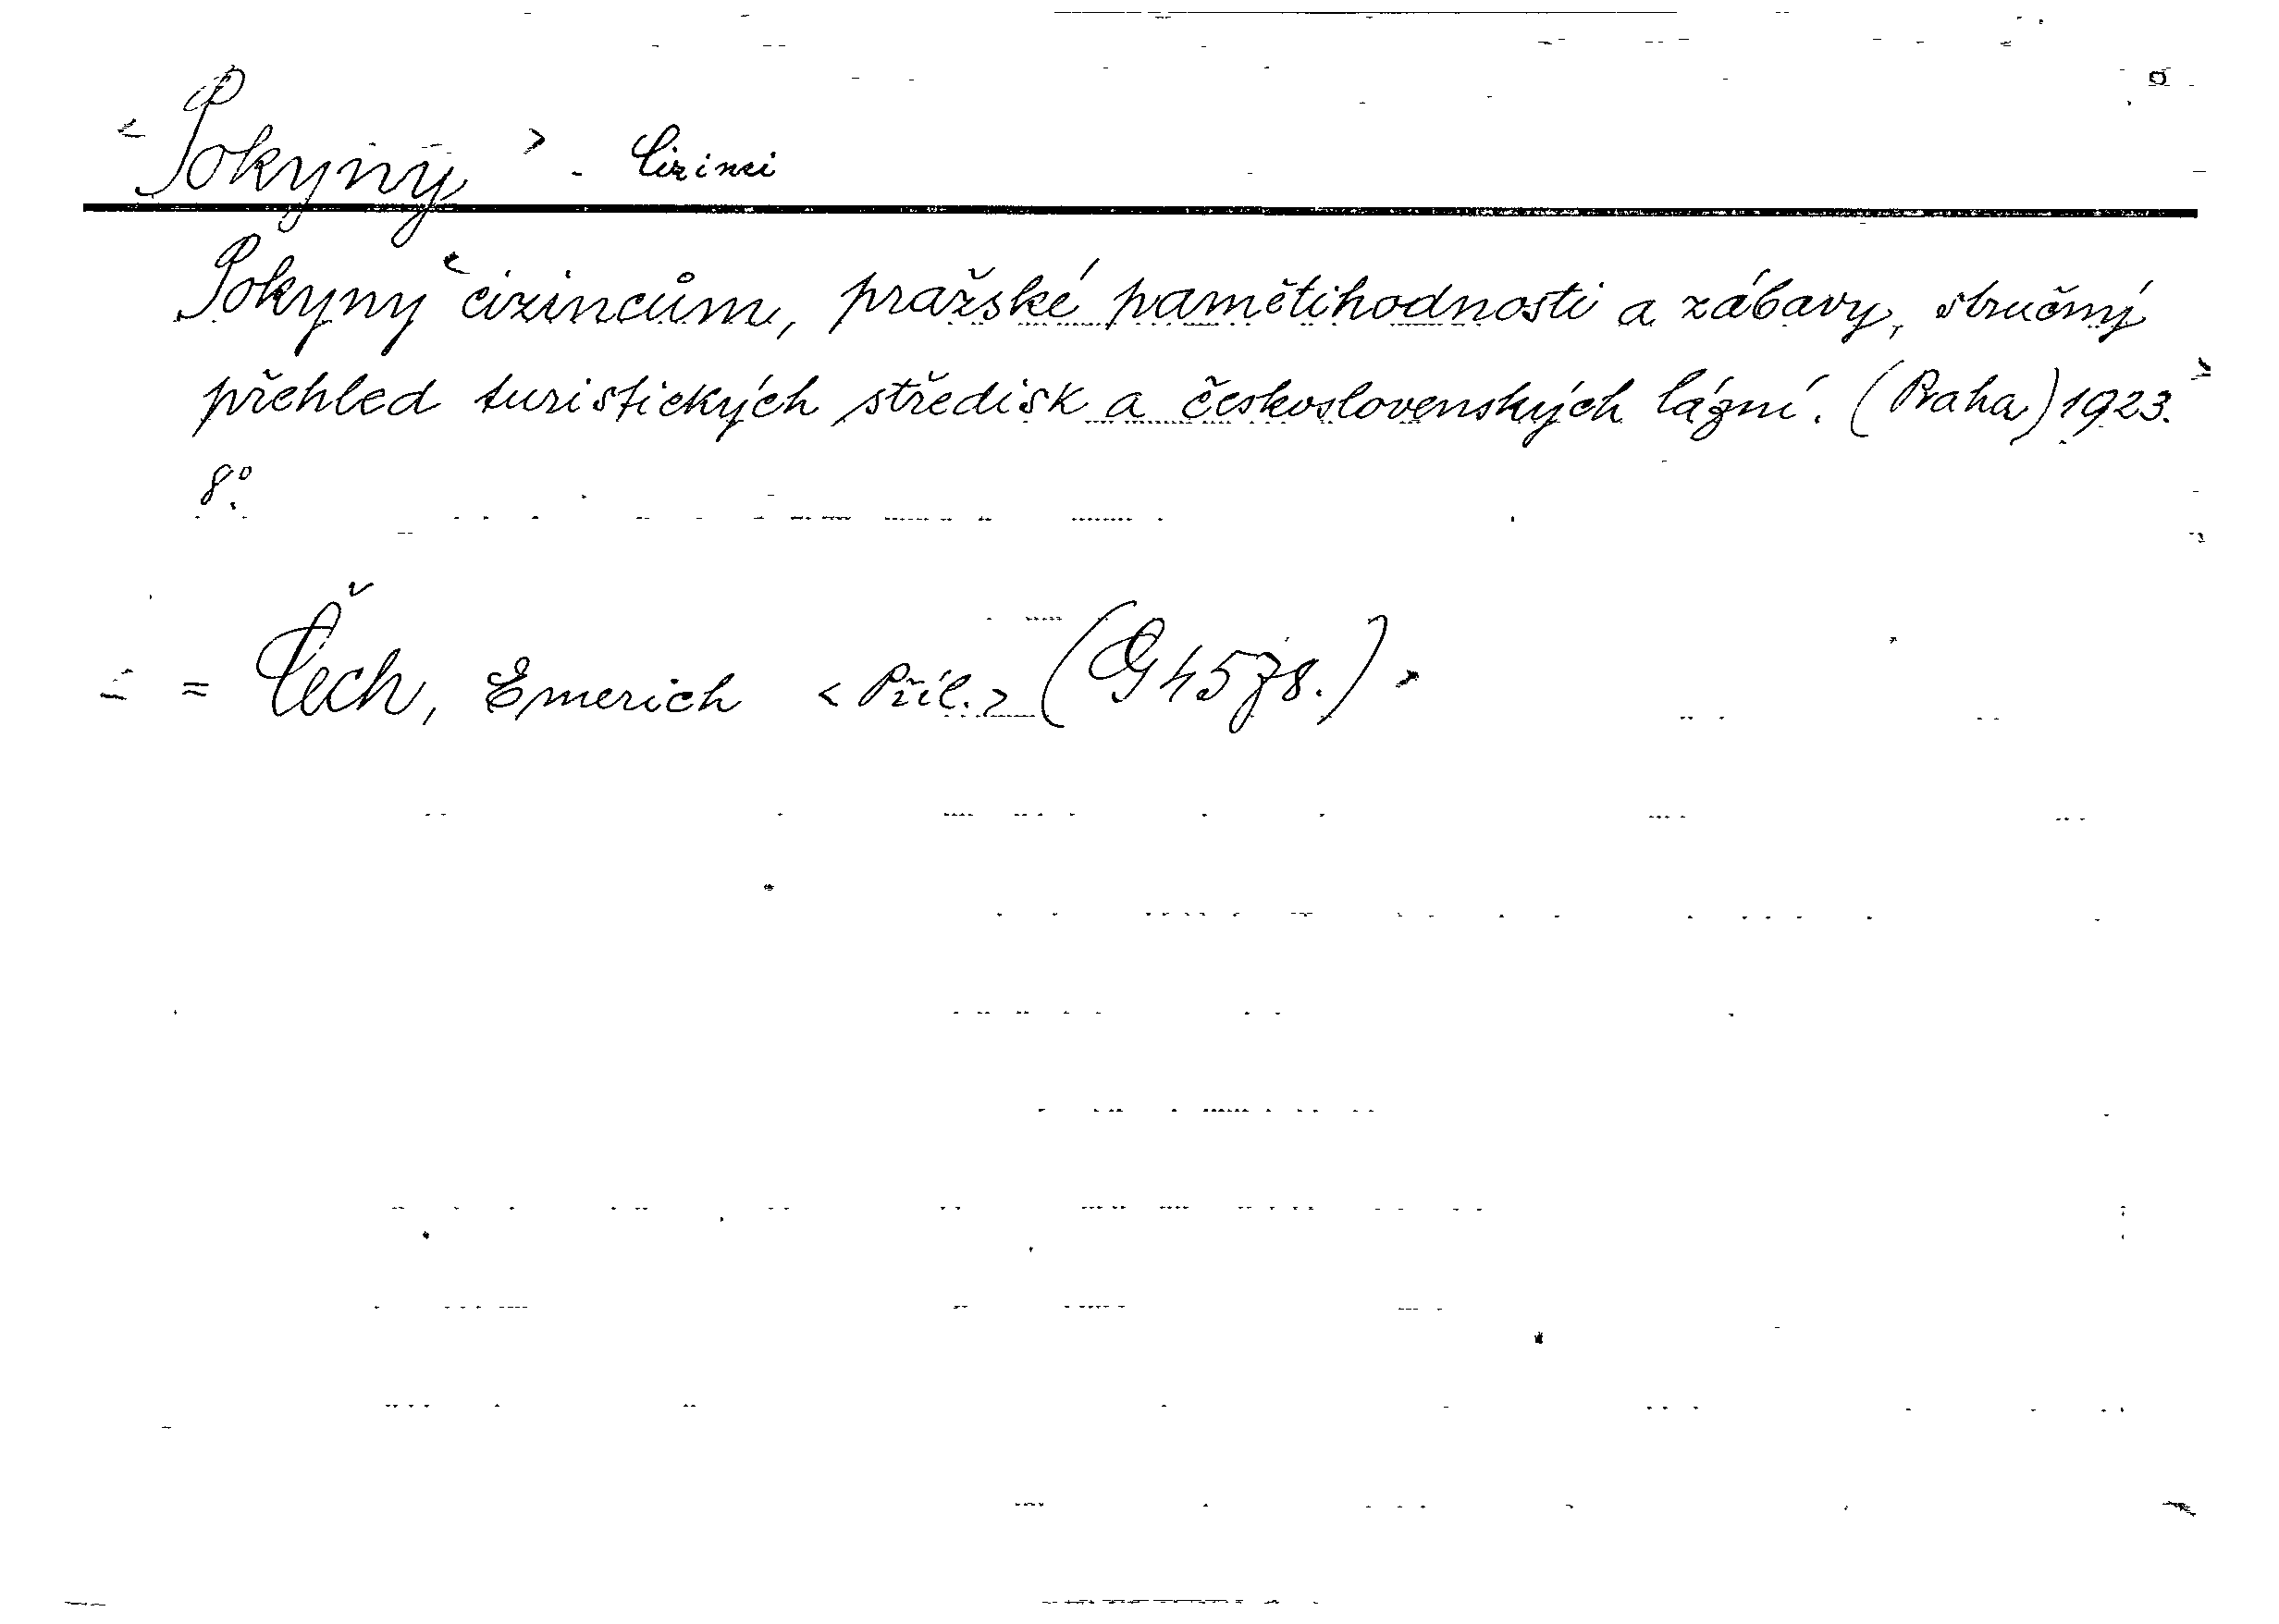 < Pokyny > - Cizinci
Pokyny < cizincům, pražské pamětihodnosti a zábavy, stručný
přehled turistických středisk a československých lázní. (Praha) 1923. >
8°.
< = Čech, Emerich < Příl. > (G 4578.) >